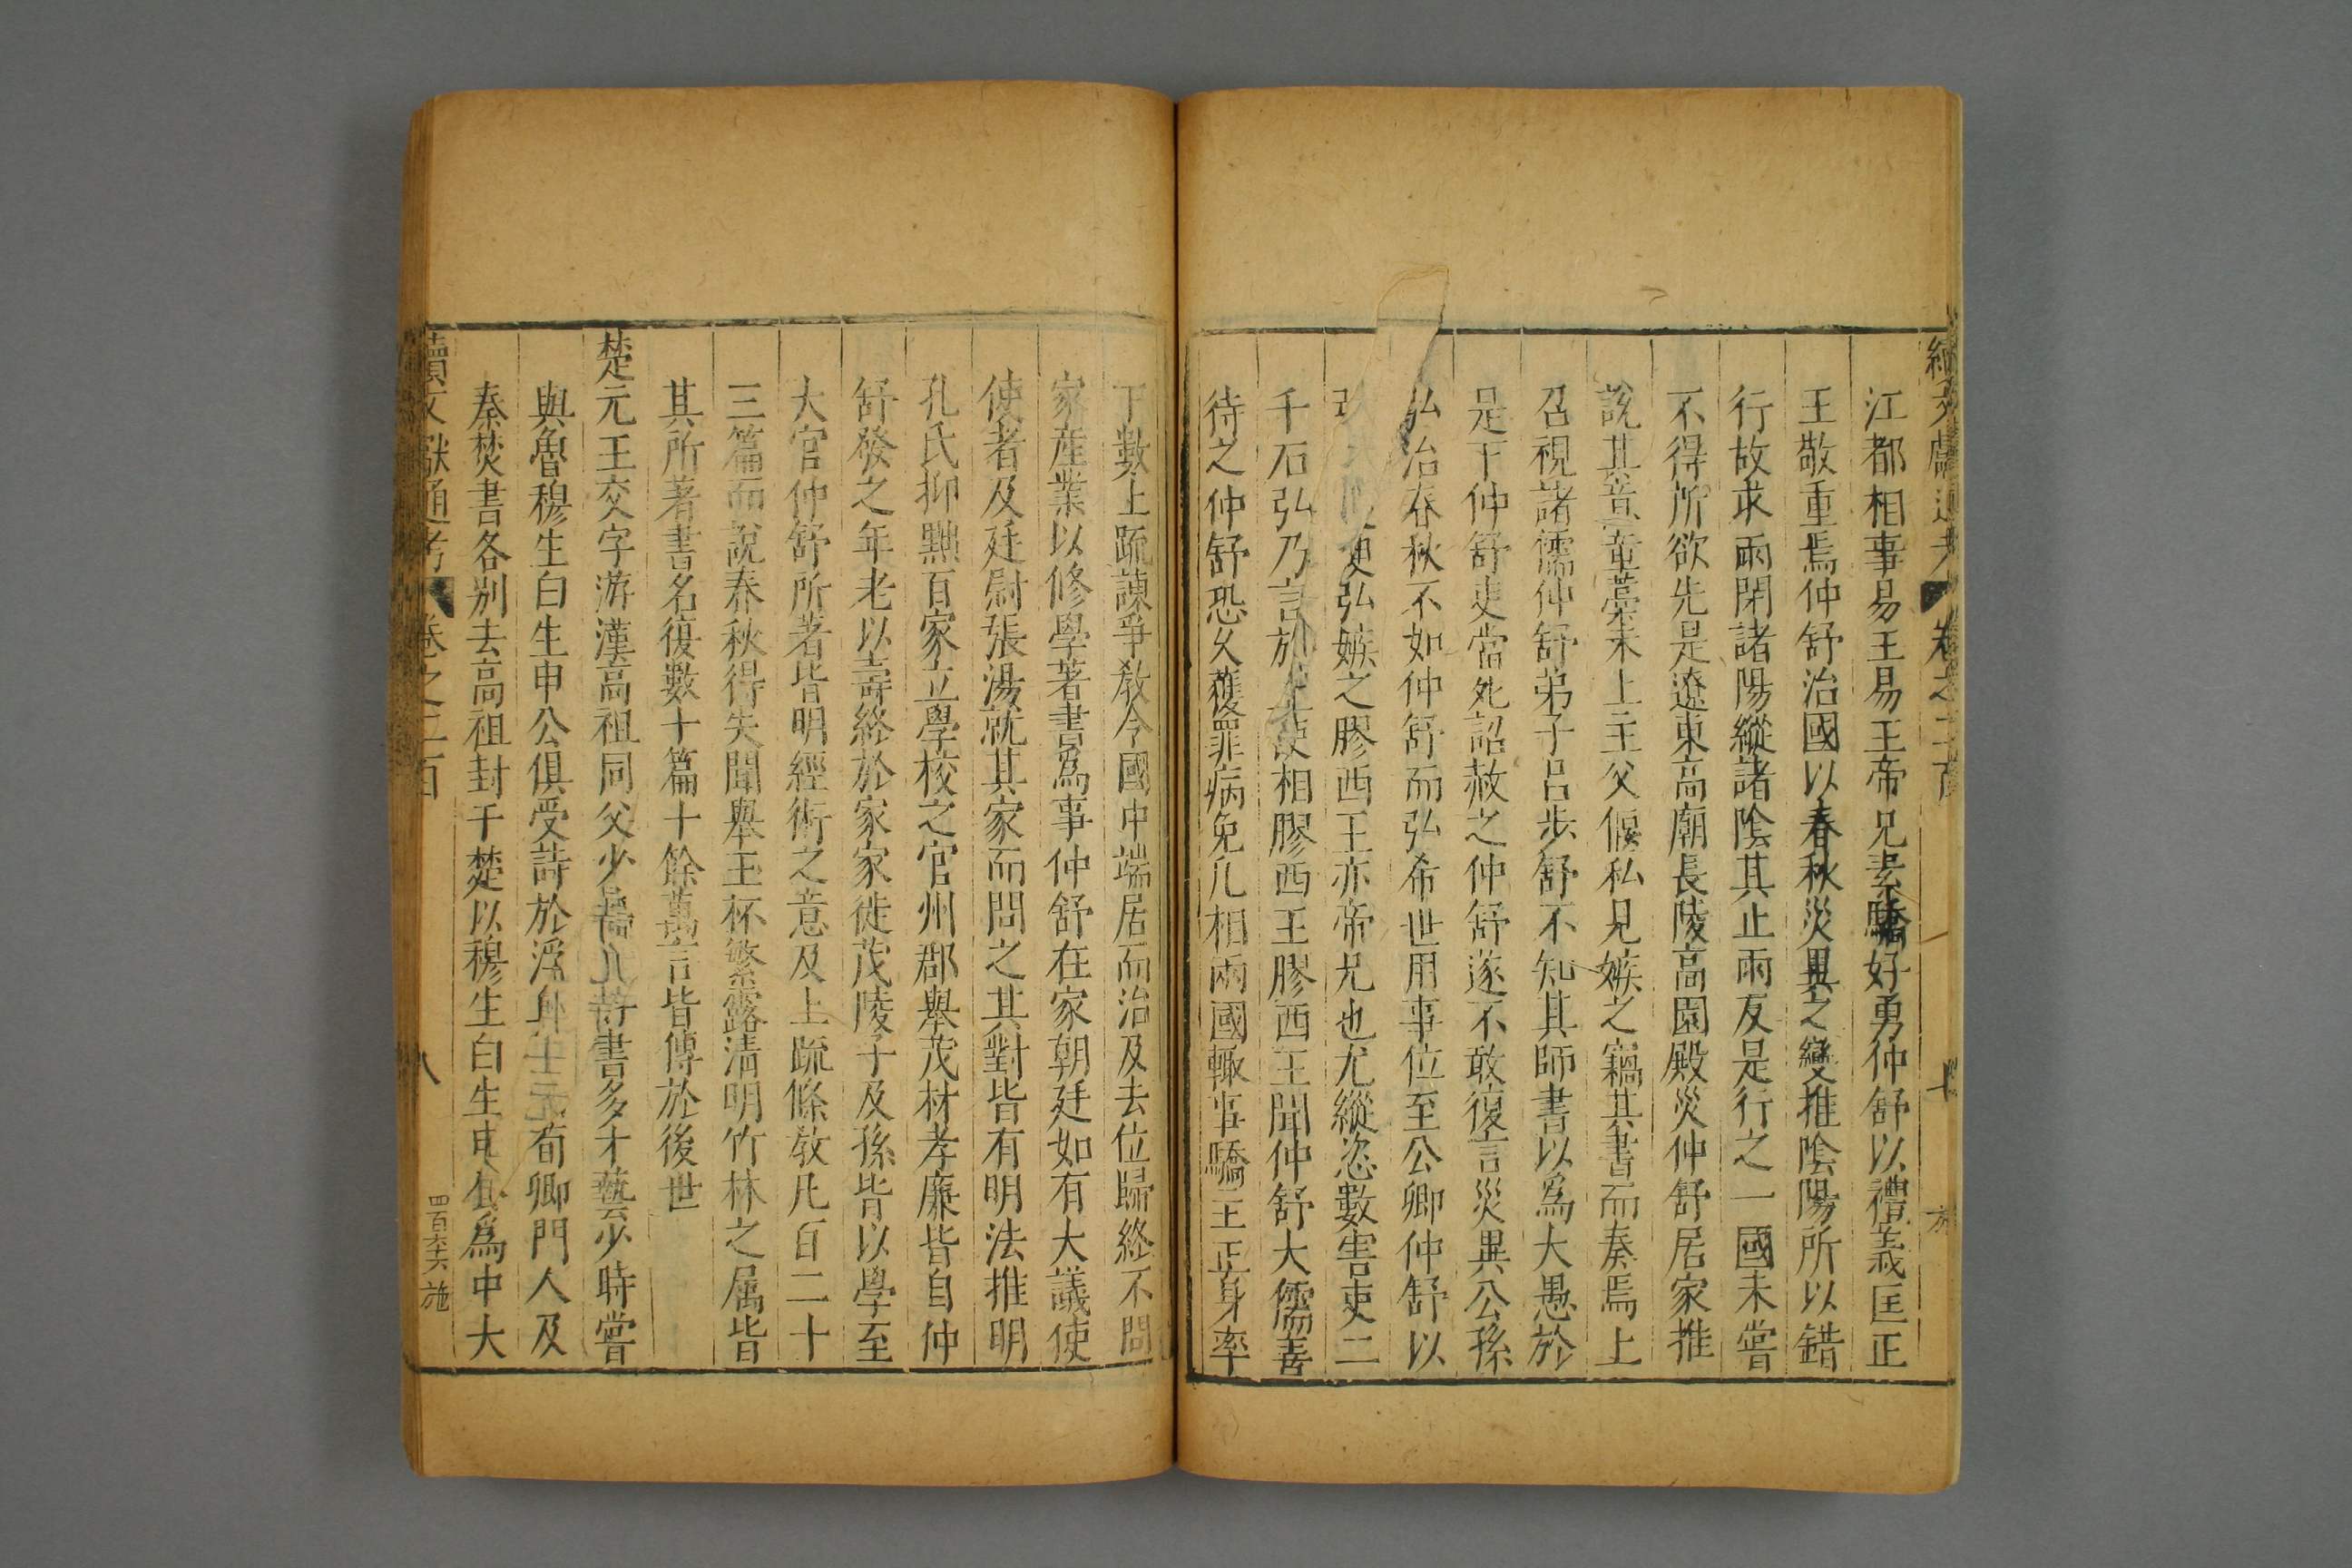 江都相事易王易王帝兄素驕好勇仲舒以禮義匡正
王敬重焉仲舒治國以春秋災異之變推陰陽所以錯
行故求雨閉諸陽縱諸陰其止雨反是行之一國未嘗
不得所欲先是遼東高廟長陵高園殿災仲舒居家推
說其意草藁未上主父偃私見嫉之竊其書而奏焉上
召視諸儒仲舒弟子呂步舒不知其師書以爲大愚於
是下仲舒吏當死詔赦之仲舒遂不敢復言災異公孫
弘治春秋不如仲舒而弘希世用事位至公卿仲舒以
弘嫉之膠西王亦帝兄也尤縱恣數害吏二
千石弘乃言於上使相膠西王膠西王聞仲舒大儒善
待之仲舒恐久獲罪病免凡相兩國輙事驕王正身率
下數上疏諫爭教令國中端居而治及去位歸終不問
家産業以修學著書爲事仲舒在家朝廷如有大議使
使者及廷尉張湯就其家而問之其對皆有明法推明
孔氏抑黜百家立學校之官州郡舉茂材孝廉皆自仲
舒發之年老以壽終於家家徙茂陵子及孫皆以學至
大官仲舒所著皆明經術之意及上疏條教凡百二十
三篇而說春秋得失聞舉玉杯繁露清明竹林之屬皆
其所著書名復數十篇十餘萬言皆傳於後世
楚元王交字游漢高祖同父少弟書多才藝少時嘗
與魯穆生白生申公俱受詩於浮丘荀卿門人及
秦焚書各別去高祖封于楚以穆生白生申公爲中大
續文獻通考 卷之二百 八 四百六十六 施